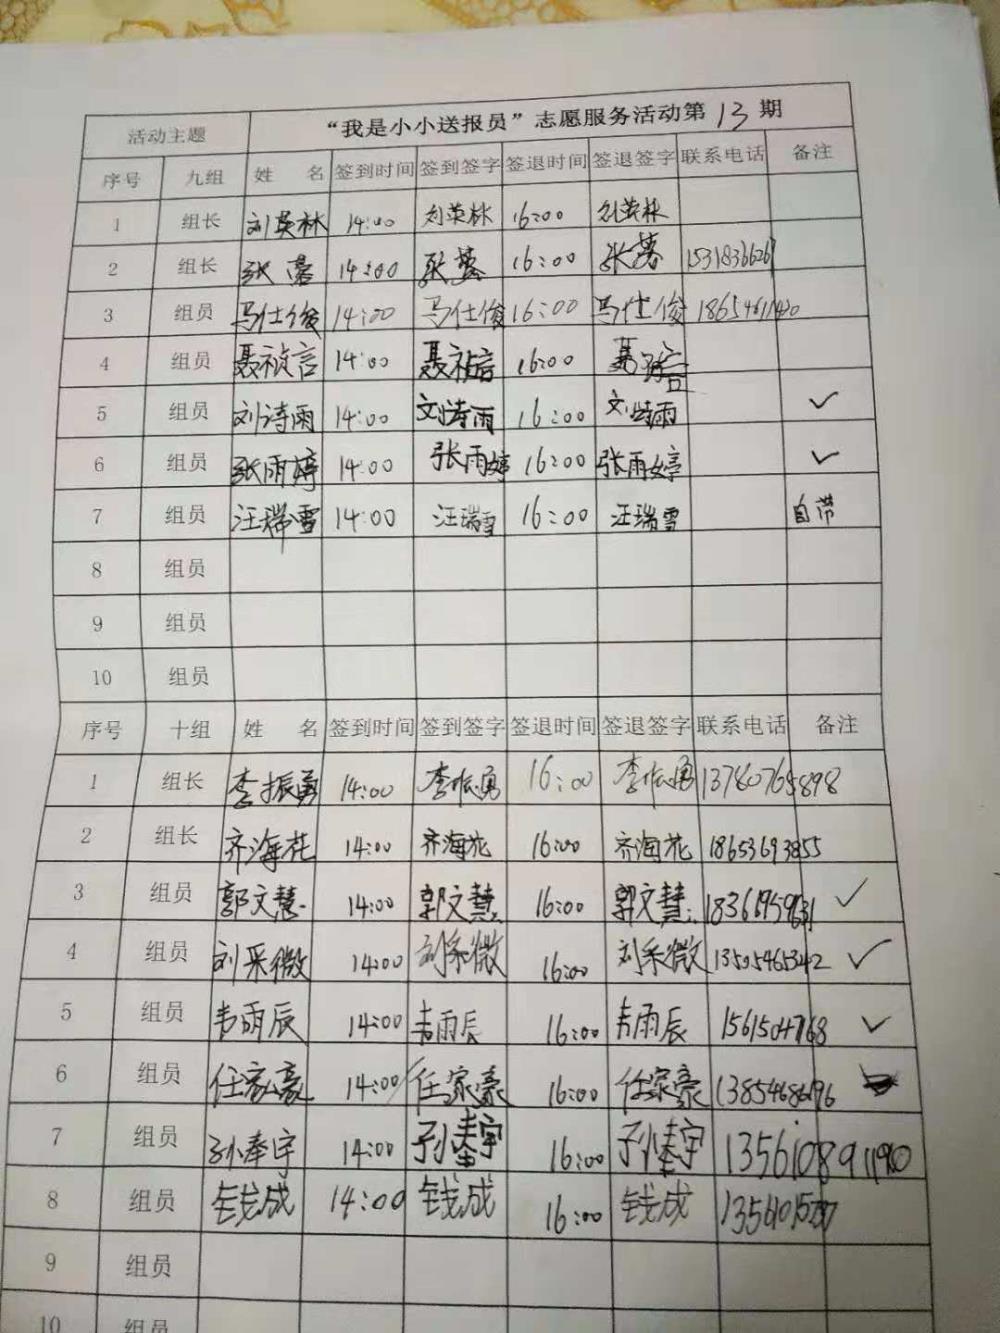 活动主题 “我是小小送报员”志愿服务活动第13期
序号 九组 姓 名 签到时间 签到签字 签退时间 签退签字 联系电话 备注
1 组长 刘英林 14:00 刘英林 16:00 刘英林
2 组长 张蕾 14:00 张蕾 16:00 张蕾
3 组员 马仕俊 14:00 马仕俊 16:00 马仕俊
4 组员 聂祯言 14:00 聂祯言 16:00
5 组员 刘诗雨 14:00 刘诗雨 16:00 刘诗雨 ✓
6 组员 张雨婷 14:00 张雨婷 16:00 张雨婷 ✓
7 组员 汪瑞雪 14:00 汪瑞雪 16:00 汪瑞雪 自带
8 组员
9 组员
10 组员
序号 十组 姓 名 签到时间 签到签字 签退时间 签退签字 联系电话 备注
1 组长 李振勇 14:00 李振勇 16:00 李振勇 13780765898
2 组长 齐海花 14:00 齐海花 16:00 齐海花 18653693855
3 组员 郭文慧 14:00 郭文慧 16:00 郭文慧 ✓
4 组员 刘采微 14:00 刘采微 16:00 刘采微 ✓
5 组员 韦雨辰 14:00 韦雨辰 16:00 韦雨辰 ✓
6 组员 任家豪 14:00 任家豪 16:00 任家豪
7 组员 孙奉宇 14:00 孙奉宇 16:00 孙奉宇
8 组员 钱成 14:00 钱成 16:00 钱成
9 组员
10 组员